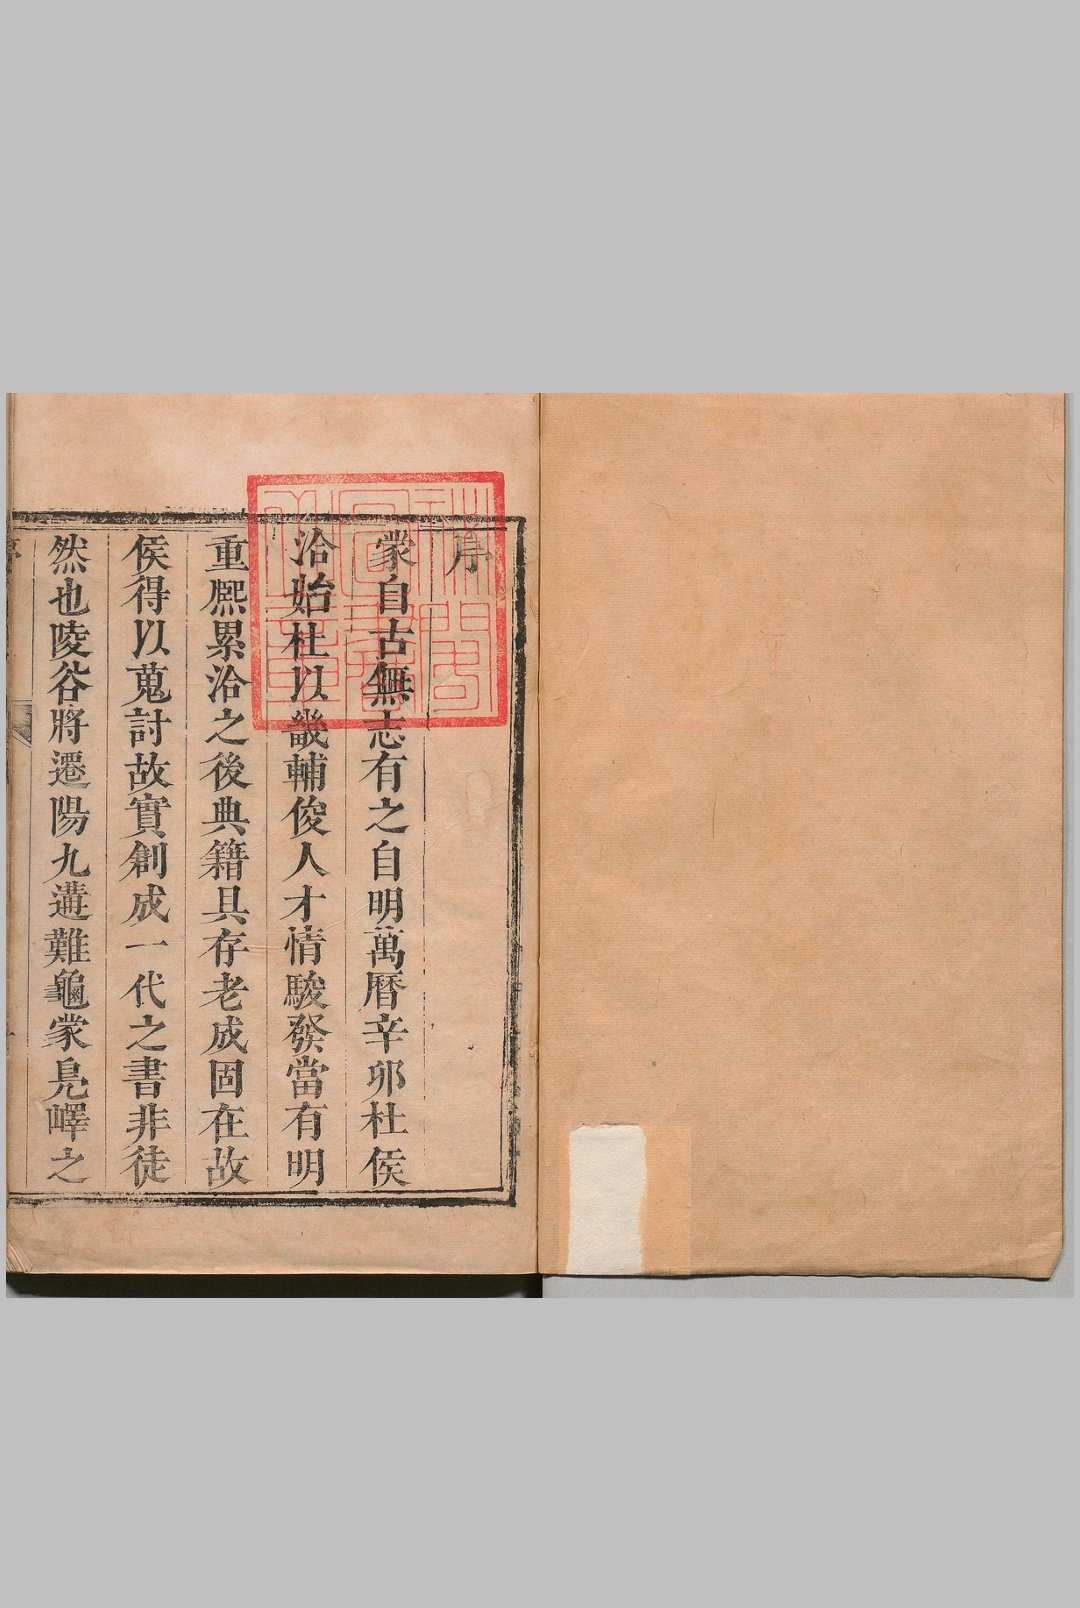 序
蒙自古無志有之自明萬曆辛卯杜侯
洽始杜以畿輔俊人才情駿發當有明
重熈累洽之後典籍具存老成固在故
侯得以蒐討故實創成一代之書非徒
然也陵谷將遷陽九遘難龜蒙鳧嶧之